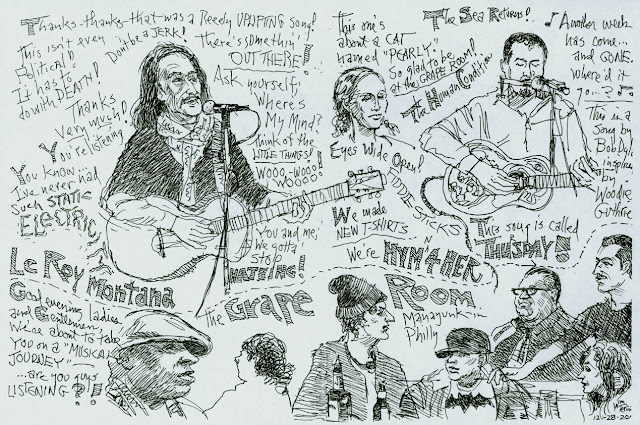 Thanks-thanks-that was a Reedy UPLIFTING song!
This isn't even
Political!
It has to
do with DEATH!
Don't be a JERK!
There's somethin'
OUT THERE!
Ask yourself,
Where's
My Mind?
Think of the
LITTLE THINGS!
Wooo-Wooo-
Woooo!
Thanks
Very much!
You're listening
You know
I've never
had
Such STATIC
ELECTRIC
You and me,
We gotta
Stop
HATING!
Le Roy Montana
Good evening ladies
and Gentlemen,
We're about to take
You on a "MUSICAL
JOURNEY"...
...are you guys
LISTENING?!
This one's
about a CAT
named "PEARLY".
So glad to be
at the GRAPE ROOM!!
The Sea Returns!
The Human Condition
Eyes Wide Open!
We made
NEW T-SHIRTS
We're HYMN 4 HER
♪ Another week
has come...
and GONE.
Where'd it
go...?
This is a
Song by
Bob Dyl
inspired
by
Woodie
Guthrie
This song is called
THURSDAY!!
The Grape Room
Manayunk in
Philly